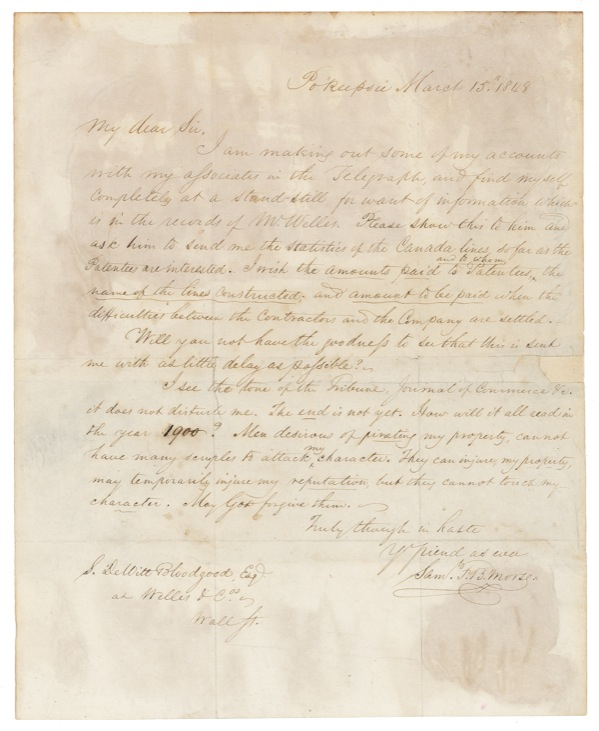 Po'keepsie March 15th 1848
My dear Sir,
I am making out some of my accounts
with my associates in the Telegraph, and find myself
completely at a stand still for want of information which
is in the records of Mr Wellis. Please show this to him and
ask him to send me the statistics of the Canada lines, so far as the
Patentees are interested. I wish the amounts paid to Patentees, and to whom, the
name of the lines constructed, and amount to be paid when the
difficulties between the Contractors and the Company are settled.
Will you not have the goodness to see that this is sent
me with as little delay as possible?
I see the tone of the Tribune, Journal of Commerce &c.
it does not disturb me. The end is not yet. How will it all read in
the year 1900? Men desirous of pirating my property, cannot
have many scruples to attack my character. They can injure my property,
may temporarily injure my reputation, but they cannot touch my
character. May God forgive them.
Truly though in haste
Yr friend as ever
Saml. F. B. Morse.
S. DeWitt Bloodgood, Esqr
at Wellis & Co.
Wall St.